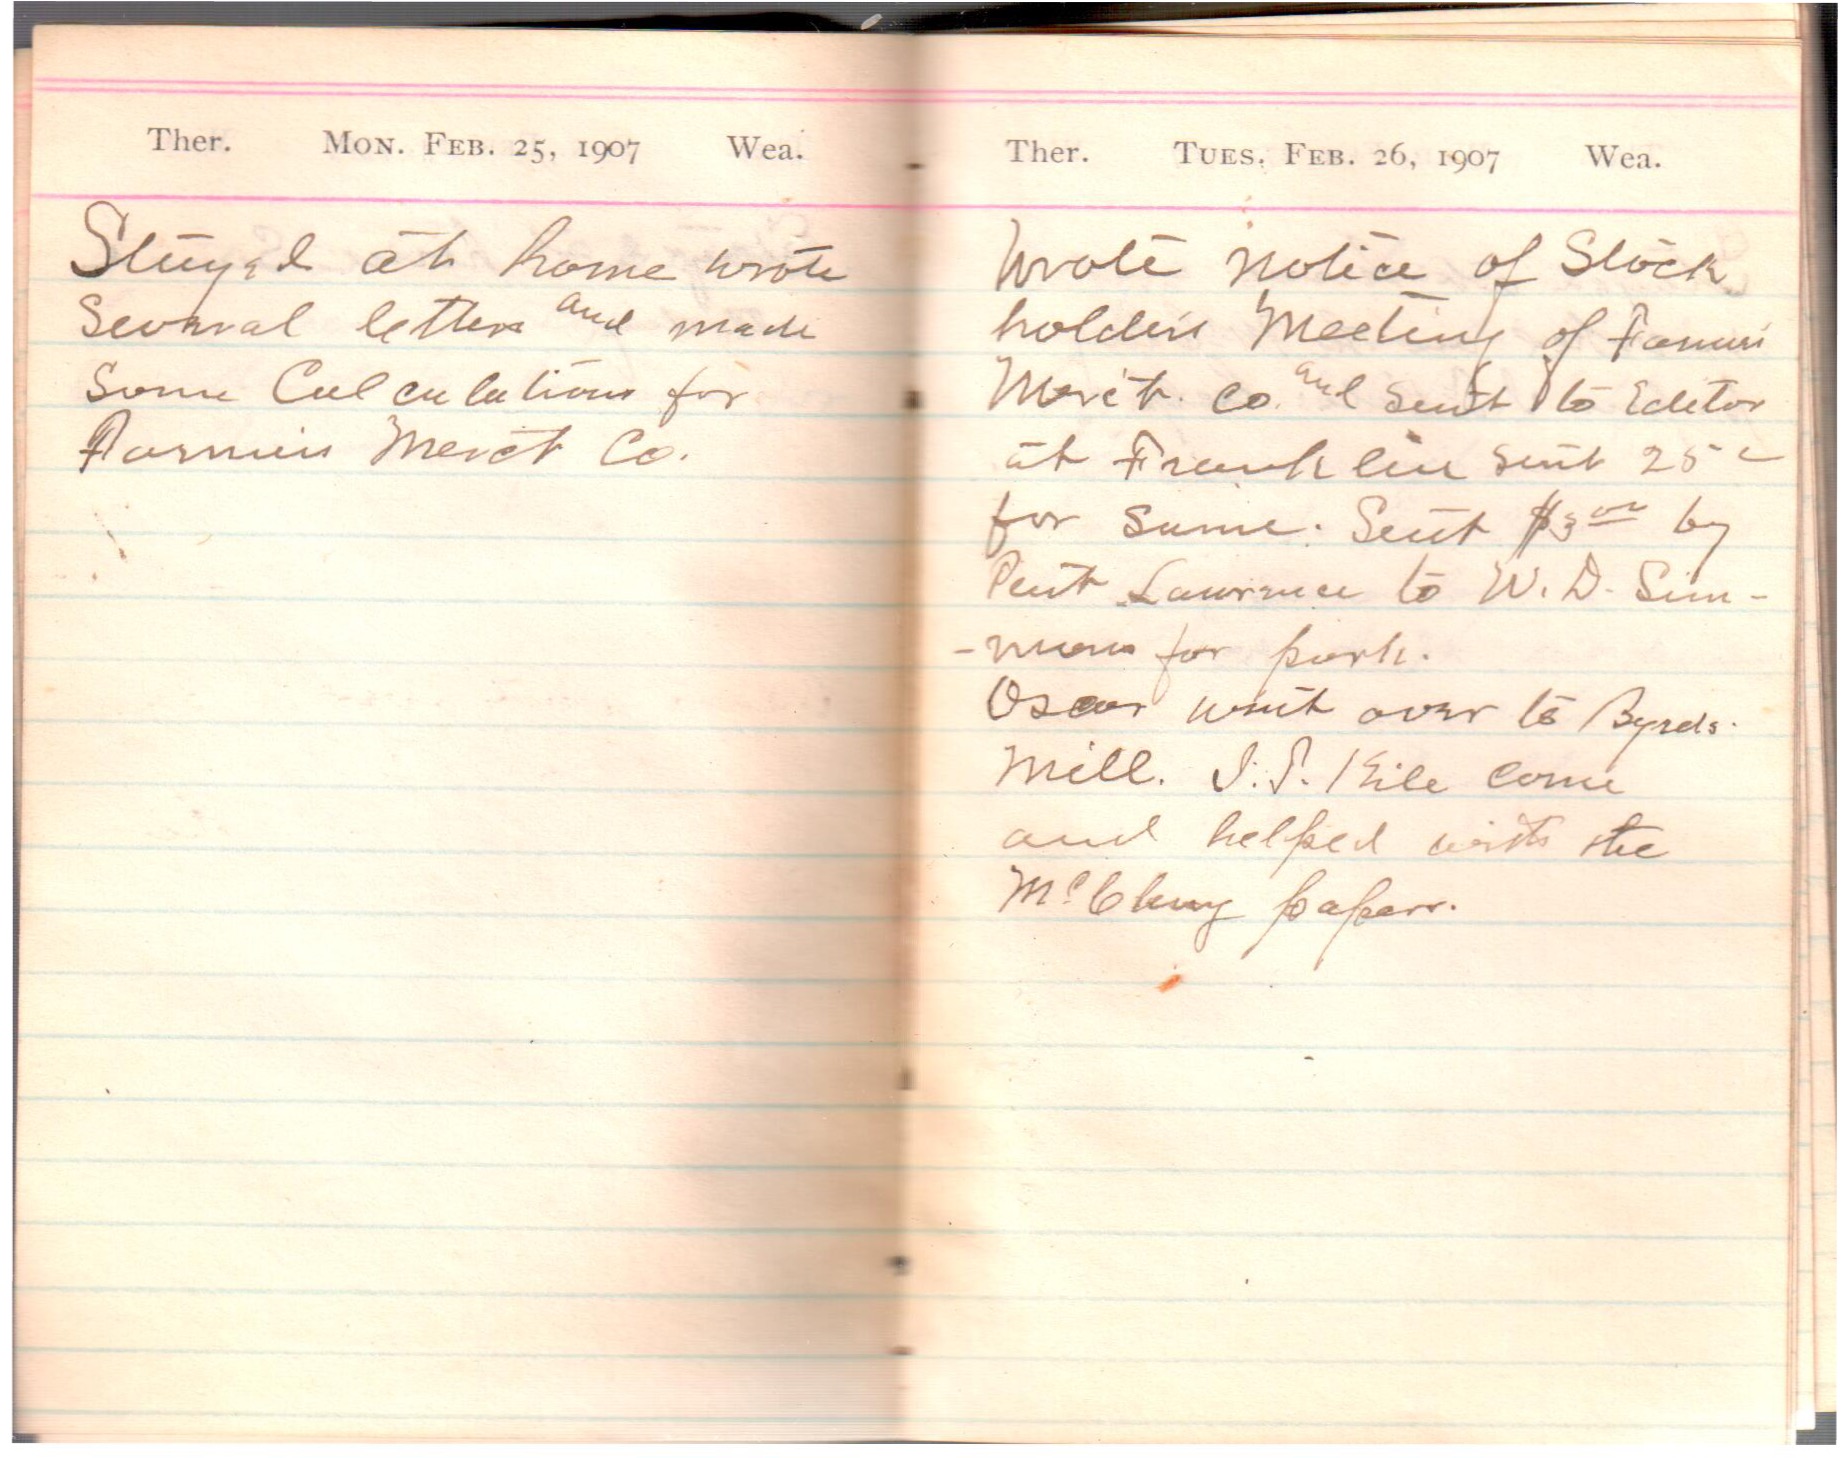 Ther. Mon. Feb. 25, 1907 Wea.
Stayed at home wrote
several letters and made
some Calculations for
Farmers Merct Co.
Ther. Tues. Feb. 26, 1907 Wea.
Wrote notice of Stock
holders Meeting of Farmers
Merct. Co. and sent to Editor
at Franklin sent 25c
for same. Sent $3.00 by
Pent Lawrence to W. D. Sim-
-mons for pork.
Oscar went over to Byrds.
Mill. Kile come
and helped with the
papers.